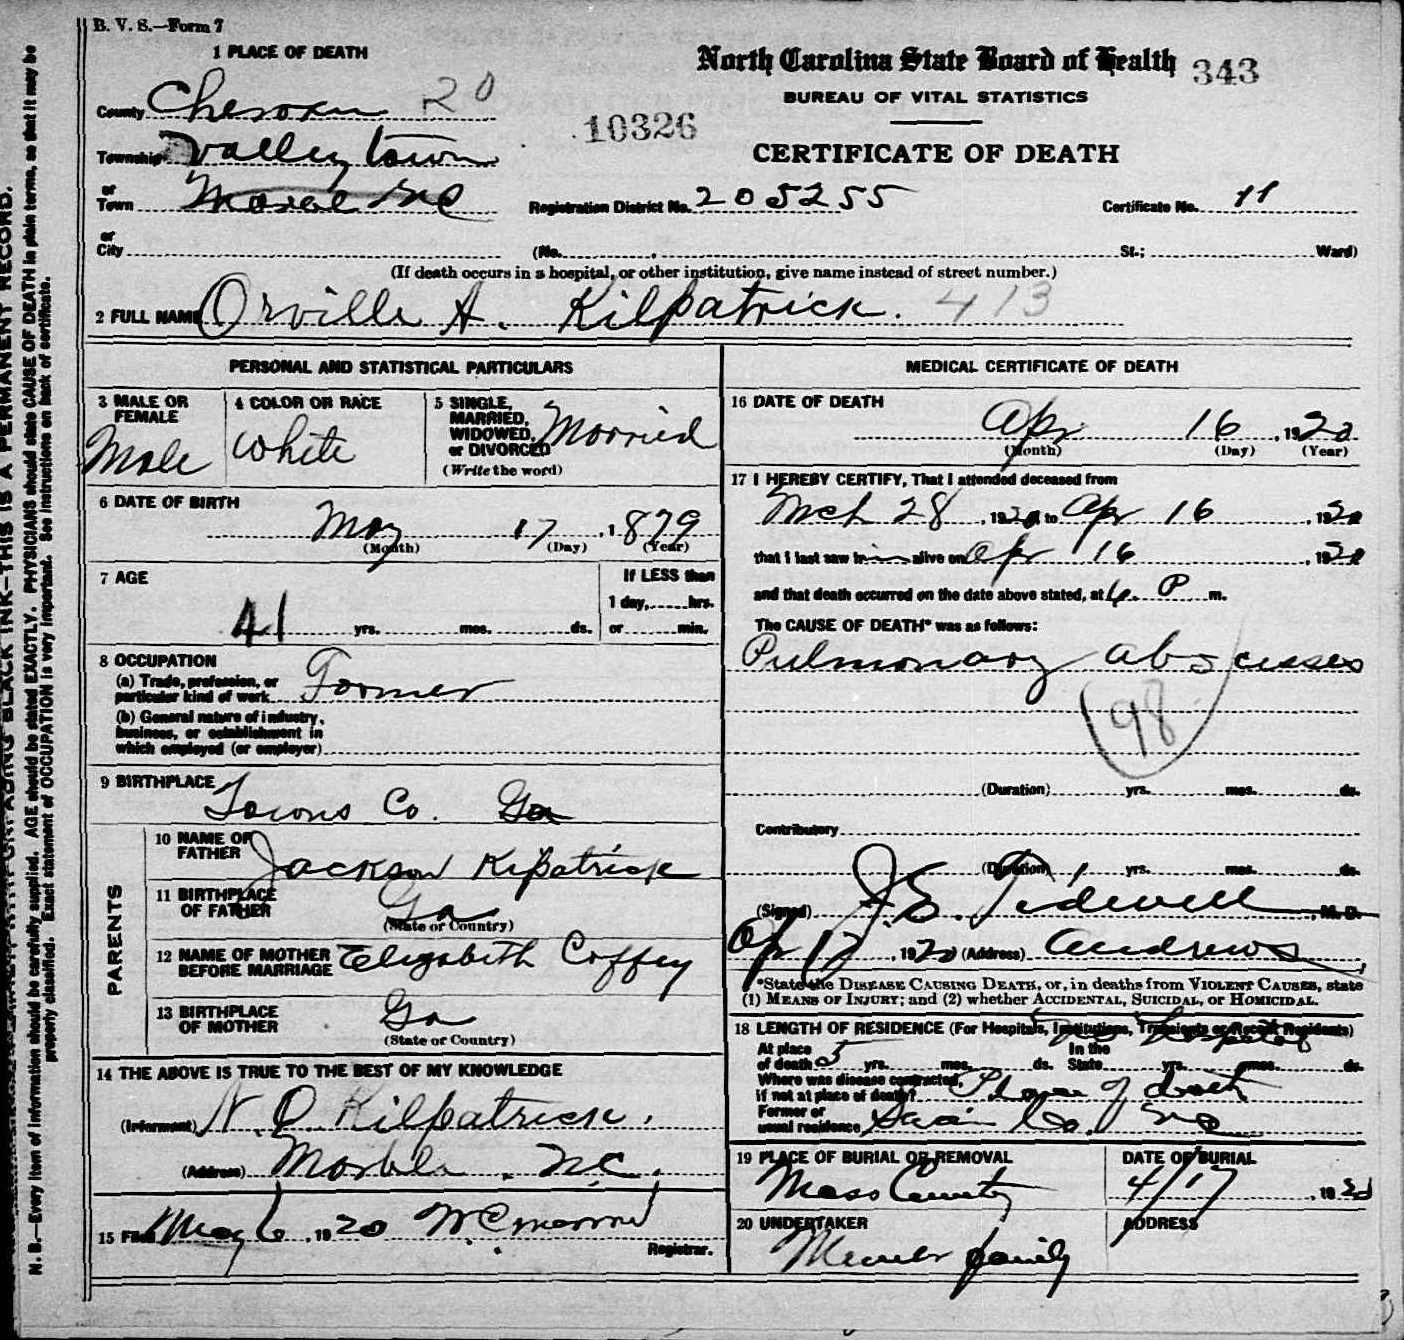 B. V. S.—Form 7
1 PLACE OF DEATH
North Carolina State Board of Health 343
BUREAU OF VITAL STATISTICS
CERTIFICATE OF DEATH
10326
County Cherokee 20
Township Valley town
or
Town NC
Registration District No. 205255 Certificate No. 11
or
City (No. St.; Ward)
(If death occurs in a hospital, or other institution, give name instead of street number.)
2 FULL NAME Orville A. Kilpatrick. 413
PERSONAL AND STATISTICAL PARTICULARS
3 MALE OR FEMALE Male
4 COLOR OR RACE White
5 SINGLE, MARRIED, WIDOWED, or DIVORCED Married
(Write the word)
6 DATE OF BIRTH
May 17, 1879
(Month) (Day) (Year)
7 AGE
41 yrs. mos. ds.
If LESS than
1 day, hrs.
or min.
8 OCCUPATION
(a) Trade, profession, or
particular kind of work Farmer
(b) General nature of industry,
business, or establishment in
which employed (or employer)
9 BIRTHPLACE
Towns Co. Ga
PARENTS
10 NAME OF
FATHER Jackson Kilpatrick
11 BIRTHPLACE
OF FATHER Ga
(State or Country)
12 NAME OF MOTHER
BEFORE MARRIAGE Elizabeth Coffey
13 BIRTHPLACE
OF MOTHER Ga
(State or Country)
14 THE ABOVE IS TRUE TO THE BEST OF MY KNOWLEDGE
(Informant) N. Q Kilpatrick.
(Address) Marble. N.C.
15 Filed May 6, 1920 W C
Registrar.
MEDICAL CERTIFICATE OF DEATH
16 DATE OF DEATH
Apr 16, 1920
(Month) (Day) (Year)
17 I HEREBY CERTIFY, That I attended deceased from
Mch 28, 1920 to Apr 16, 1920
that I last saw him alive on Apr 16, 1920
and that death occurred on the date above stated, at P m.
The CAUSE OF DEATH* was as follows:
Pulmonary abscesses
98
(Duration) yrs. mos. ds.
Contributory
(Duration) yrs. mos. ds.
(Signed) J. E. Tidwell, M. D.
Apr 1920 (Address) Andrews
*State the DISEASE CAUSING DEATH, or, in deaths from VIOLENT CAUSES, state
(1) MEANS OF INJURY; and (2) whether ACCIDENTAL, SUICIDAL, or HOMICIDAL.
18 LENGTH OF RESIDENCE (For Hospitals, Institutions, Transients or Recent Residents)
No Hospital
At place
of death 5 yrs. mos. ds. In the State yrs. mos. ds.
Where was disease contracted,
if not at place of death? Place of death
Former or
usual residence Swain Co. NC
19 PLACE OF BURIAL OR REMOVAL DATE OF BURIAL
4/17, 1920
20 UNDERTAKER ADDRESS
family
N. B.—Every item of information should be carefully supplied. AGE should be stated EXACTLY. PHYSICIANS should state CAUSE OF DEATH in plain terms, so that it may be
properly classified. Exact statement of OCCUPATION is very important. See instructions on back of certificate.
THIS IS A PERMANENT RECORD.